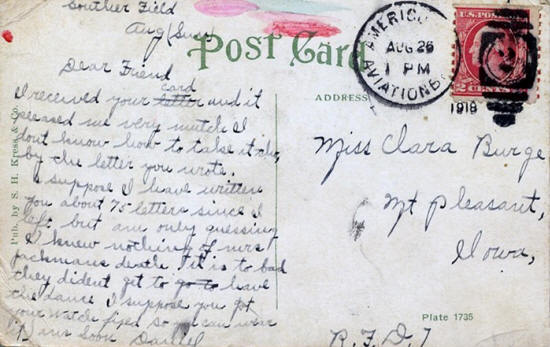 Souther Field
Aug (Sun)
Dear Friend
I received your letter card and it
pleased me very much I
dont know how to take it tho,
by the letter you wrote.
I suppose I have written
you about 75 letters since I
left but am only guessing
I knew nothing of mrs
Jackmans death. It is to bad
they dident get to go to have
the dance I suppose you got
your watch fixed so you can wear
it ans soon Daniel
Post Card
ADDRESS
AMERICUS
AUG 26
1 PM
AVIATION
1918
U.S. POSTAGE
2 CENTS 2
Miss Clara Burge
Mt Pleasant,
Iowa,
R.F.D. 7
Plate 1735
Pub. by S. H. Kress & Co.